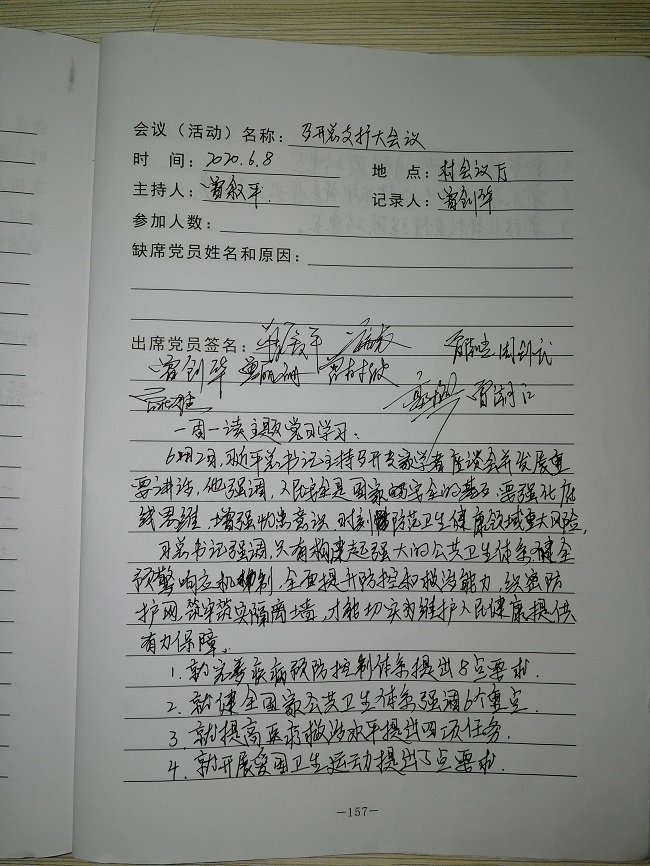 会议（活动）名称：召开总支扩大会议
时 间：2020.6.8
地 点：村会议厅
主持人：曾叙平
记录人：曾创华
参加人数：
缺席党员姓名和原因：
出席党员签名：
曾创华
一周一读主题党日学习：
6月2日，习近平总书记主持召开专家学者座谈会并发展重
要讲话，他强调，人民安全是国家安全的基石，要强化底
线思维，增强忧患意识，时刻防范卫生健康领域重大风险，
习总书记强调，只有构建起强大的公共卫生体系，健全
预警响应机制，全面提升防控和救治能力，织密防
护网，筑牢筑实隔离墙，才能切实为维护人民健康提供
有力保障。
1. 就完善疾病预防控制体系提出5点要求．
2. 就健全国家公共卫生体系强调6个重点．
3. 就提高医疗救治水平提出四项任务．
4. 就开展爱国卫生运动提出5点要求．
—157—